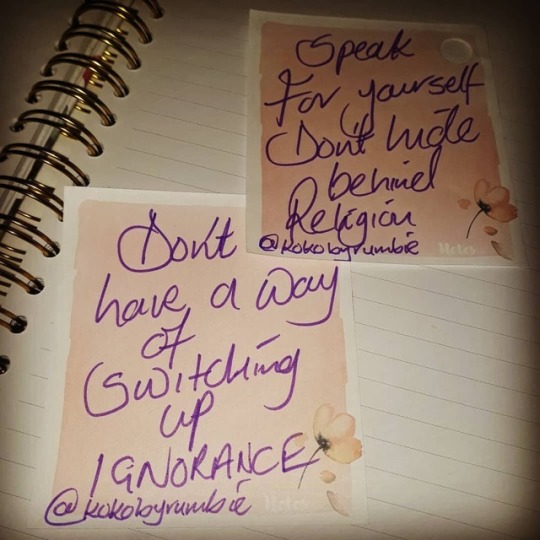 Speak
For yourself
Don't hide
behind
Religion
@kokobyrumbie
Notes
Don't
have a way
of
Switching
up
IGNORANCE
@kokobyrumbie
Notes